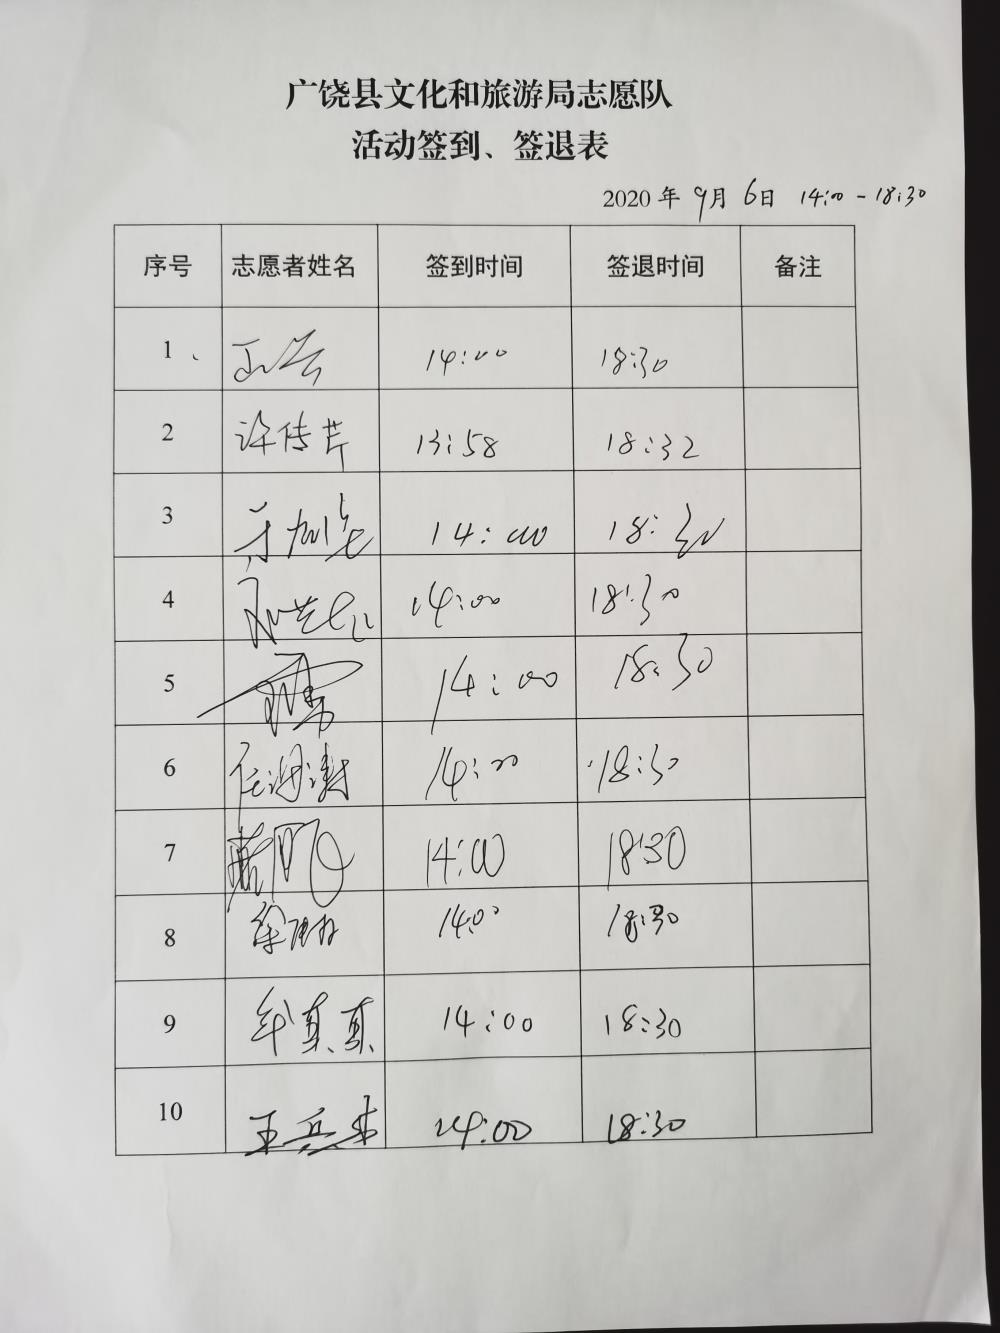 广饶县文化和旅游局志愿队
活动签到、签退表
2020 年 9月 6日 14:00 - 18:30
序号 志愿者姓名 签到时间 签退时间 备注
1 14:00 18:30
2 许传芹 13:58 18:32
3 14:00 18:30
4 14:00 18:30
5 14:00 18:30
6 14:00 18:30
7 14:00 18:30
8 14:00 18:30
9 牟真真 14:00 18:30
10 王兵 14:00 18:30